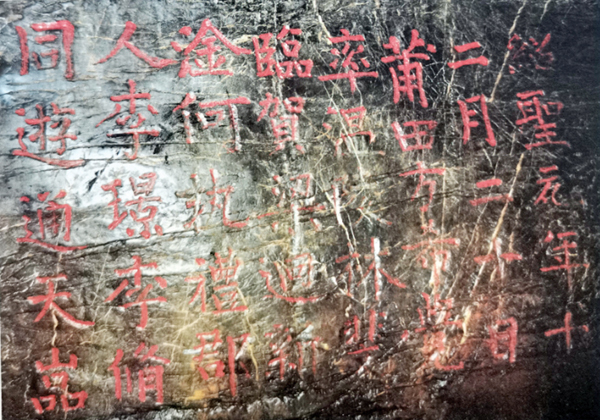 紹聖元年十
二月二十日
莆田方希覺
率林
臨賀梁迴新
淦何執禮郡
人李璟李脩
同遊通天嵓